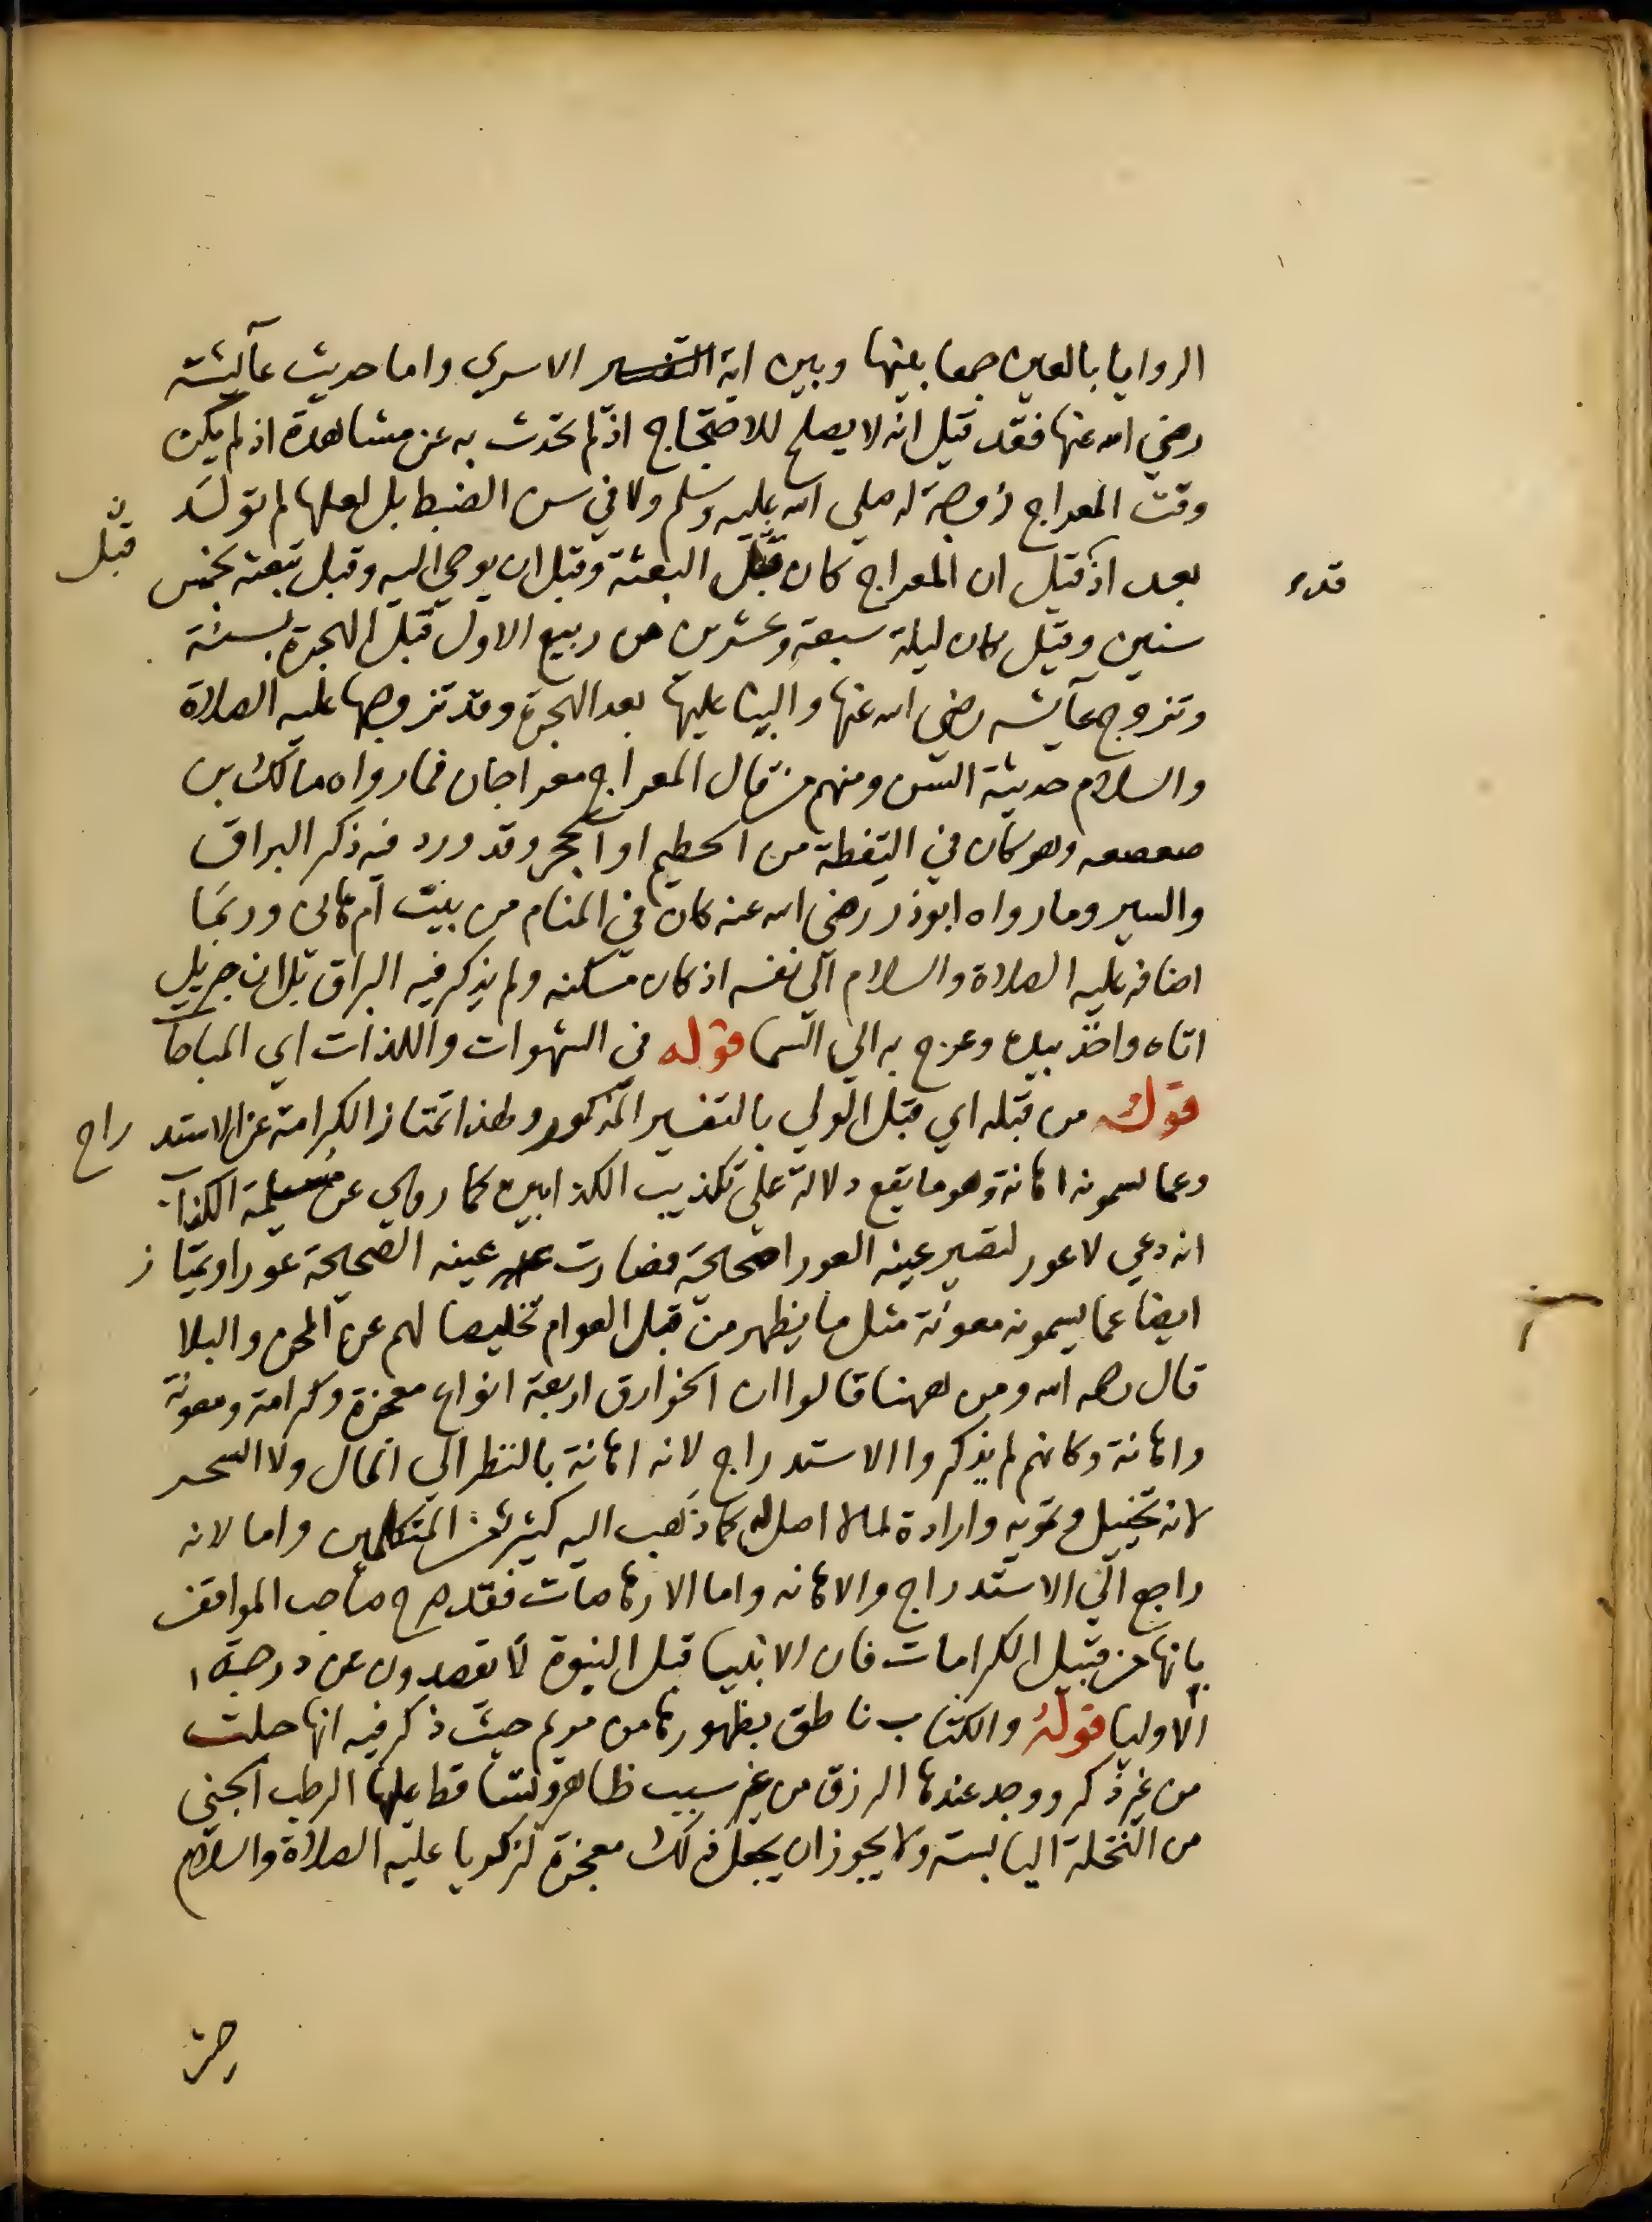 الرويا بالعين جمعا بينها وبين اية التفسير الاسري واما حديث عآيشة
رضي الله عنها فقد قيل انه لا يصلح للاحتجاج اذ لم تحدث به عن مشاهدة اذ لم يكن
وقت المعراج زوجة له صلي الله عليه وسلم ولا في سن الضبط بل لعلها لم تولد
بعد اذ قيل ان المعراج كان قبل البعثة وقبل ان يوحي اليه وقبل بعثه بخمس
قبل
قدء
سنين وقيل كان ليلة سبعة وعشرين من ربيع الاول قبل الهجرة بسنة
وتزوج عآيشه رضي الله عنها والبنا عليها بعد الهجرة وقد تزوجها عليه الصلاة
والسلام حديثة السن ومنهم من قال المعراج معراجان فما رواه مالك بن
صعصعه وهو كان في اليقظة من الحطيم او الحجر وقد ورد فيه ذكر البراق
والسير وما رواه ابوذر رضي الله عنه كان في المنام من بيت ام هاني وربما
اضافه عليه الصلاة والسلام الي نفسه اذ كان مسكنه ولم يذكر فيه البراق بل ان جبريل
اتاه واخذ بيده وعرج به الي السما قوله في الشهوات واللذات اي المباحا
قوله من قبله اي قبل الولي بالتفسير المذكور وبهذا تمتاز الكرامة عن الاستد راج
وعما يسمونه اهانة وهو ما يقع دلالة علي تكذيب الكذابين كما روي عن مسيلمة الكذاب
انه دعي لاعور لتصير عينه العورا صحيحة فصارت عينه الصحيحة عورا ويمتاز
ايضا عما يسمونه معونة مثل ما يظهر من قبل العوام تخليصا لهم عن المحن والبلا
قال رحمه الله ومن لههنا قالوا ان الخوارق اربعة انواع معجزة وكرامة ومعونة
واهانة وكانهم لم يذكروا الاستدراج لانه اهانة بالنظر الي المال ولا السحر
لانه تخييل وتمويه وارادة لما لا اصل له كما ذهب اليه كثير من المتكلمين واما لانه
راجع الي الاستدراج والاهانه واما الارهاصات فقد صرح صاحب المواقف
بانها من قبيل الكرامات فان الانبيا قبل النبوة لا يقصرون عن درجة ا
الاوليا قوله والكتاب ناطق بظهورها من مريم حيث ذكر فيه انها حملت
من غير ذكر ووجد عندها الرزق من غير سبب ظاهر وتساقط عليها الرطب الجني
من النخلة اليابسة ولا يجوز ان يجعل ذلك معجزة لزكريا عليه الصلاة والسلام